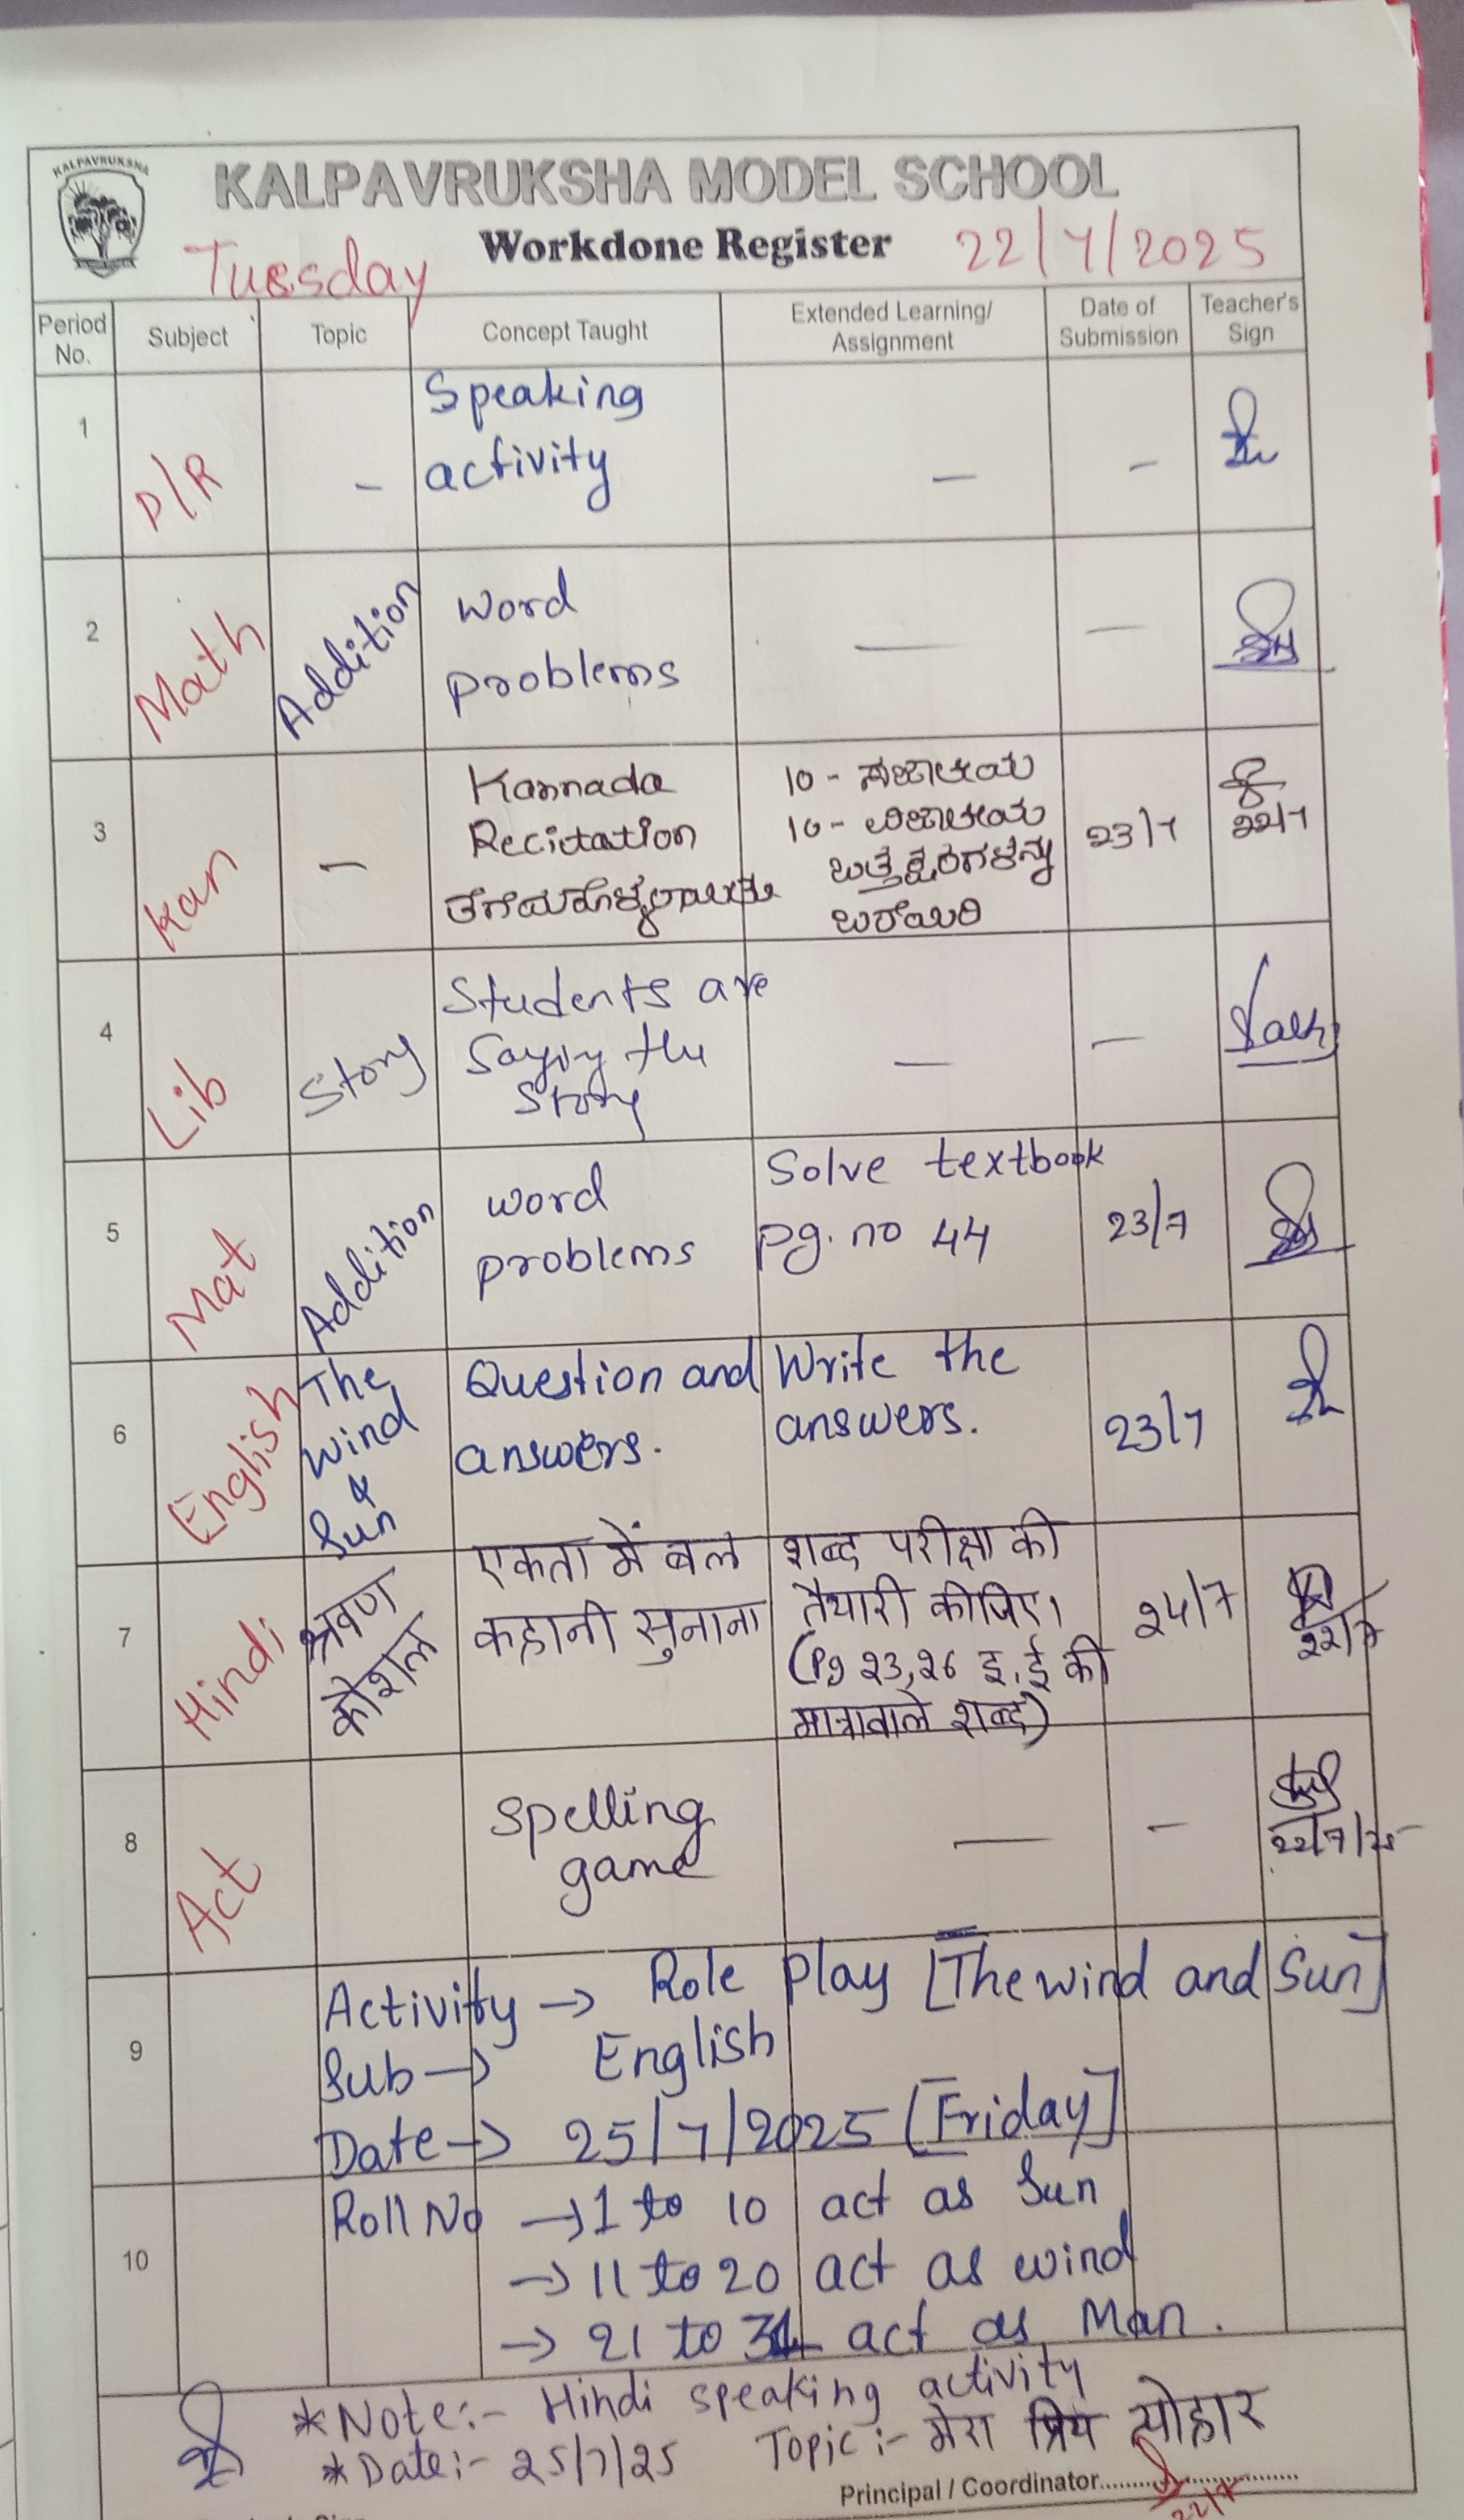 KALPAVRUKSHA
KALPAVRUKSHA MODEL SCHOOL
Workdone Register
Tuesday
22/7/2025
Period No.
Subject
Topic
Concept Taught
Extended Learning/ Assignment
Date of Submission
Teacher's Sign
1
P/R
-
Speaking
activity
-
-
2
Math
Addition
word
problems
-
-
3
Kan
-
Kannada
Recitation
ತೆಗೆದುಕೊಳ್ಳಲಾಯಿತು
10 - ಸಜಾತೀಯ
10 - ವಿಜಾತೀಯ
ಒತ್ತಕ್ಷರಗಳನ್ನು
ಬರೆಯಿರಿ
23/7
22/7
4
Lib
Story
Students are
Saying the
Story
-
-
5
Mat
Addition
word
problems
Solve textbook
pg. no 44
23/7
6
English
The
Wind
&
Sun
Question and
answers.
Write the
answers.
23/7
7
Hindi
श्रवण
कौशल
एकता में बल
कहानी सुनाना
शब्द परीक्षा की
तैयारी कीजिए।
(Pg 23,26 इ,ई की
मात्रावाले शब्द)
24/7
22/7
8
Act
Spelling
game
-
-
22/7/25
9
Activity → Role Play [The wind and Sun]
Sub → English
Date → 25/7/2025 [Friday]
10
Roll No → 1 to 10 act as Sun
→ 11 to 20 act as wind
→ 21 to 31 act as Man.
*Note:- Hindi speaking activity
*Date:- 25/7/25 Topic:- मेरा प्रिय त्योहार
Principal / Coordinator
22/7